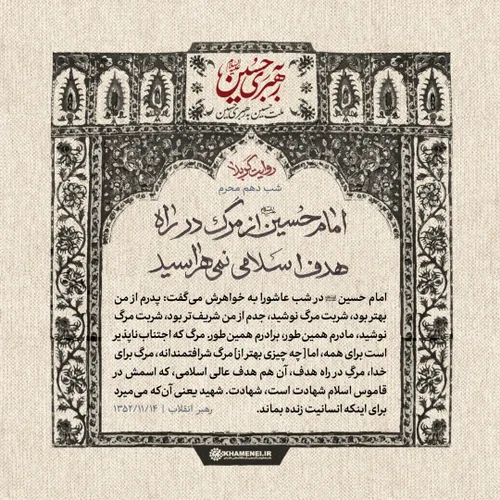 به رهبری حسین
ملت حسین به رهبری حسین
روایت کربلا
شب دهم محرم
امام حسین از مرگ در راه
هدف اسلامی نمی‌هراسید
امام حسین در شب عاشورا به خواهرش می‌گفت: پدرم از من
بهتر بود، شربت مرگ نوشید، جدم از من شریف‌تر بود، شربت مرگ
نوشید، مادرم همین طور، برادرم همین طور. مرگ که اجتناب‌ناپذیر
است برای همه، اما [چه چیزی بهتر از] مرگ شرافتمندانه، مرگ برای
خدا، مرگ در راه هدف، آن هم هدف عالی اسلامی، که اسمش در
قاموس اسلام شهادت است، شهادت. شهید یعنی آن‌که می‌میرد
برای اینکه انسانیت زنده بماند.
رهبر انقلاب | ۱۳۵۲/۱۱/۱۴
KHAMENEI.IR